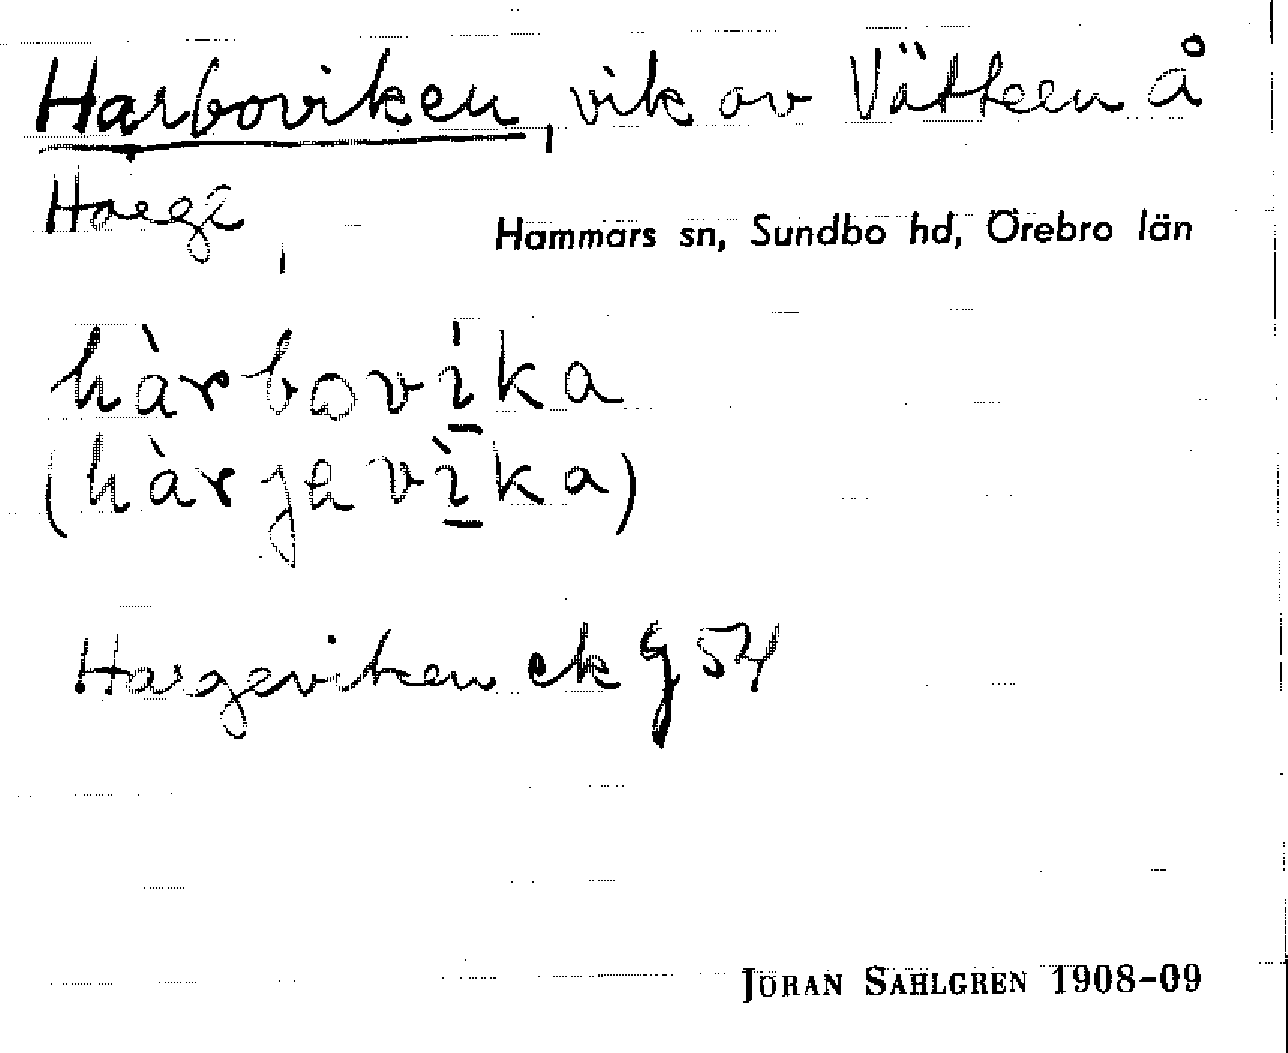 Harboviken, vik av Vättern å
Harga,
Hammars sn, Sundbo hd, Örebro län
hàrbovi̲ka
(hàrjevì̲ka)
Hargeviken ek G 54
JÖRAN SAHLGREN 1908-09